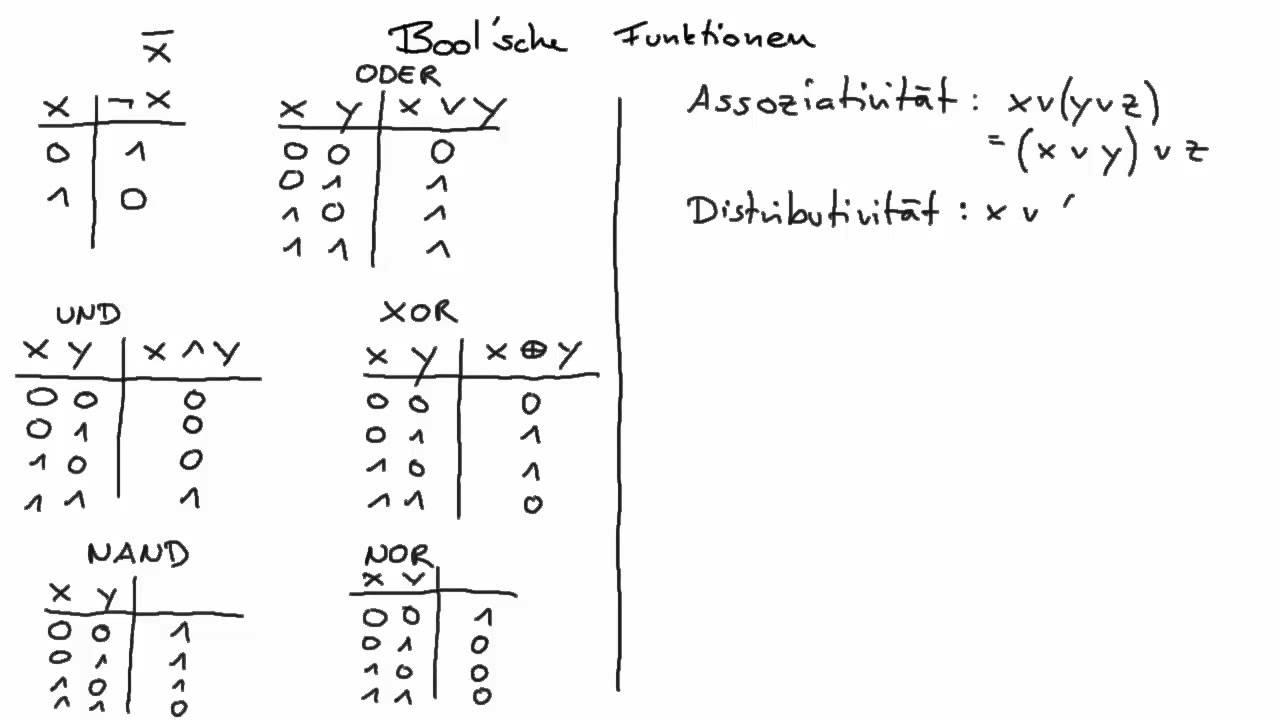 Bool'sche Funktionen
x̅
x | ¬ x
0 | 1
1 | 0
ODER
x y | x ∨ y
0 0 | 0
0 1 | 1
1 0 | 1
1 1 | 1
UND
x y | x ∧ y
0 0 | 0
0 1 | 0
1 0 | 0
1 1 | 1
XOR
x y | x ⊕ y
0 0 | 0
0 1 | 1
1 0 | 1
1 1 | 0
NAND
x y |
0 0 | 1
0 1 | 1
1 0 | 1
1 1 | 0
NOR
x y |
0 0 | 1
0 1 | 0
1 0 | 0
1 1 | 0
Assoziativität : x ∨ (y ∨ z)
= (x ∨ y) ∨ z
Distributivität : x ∨